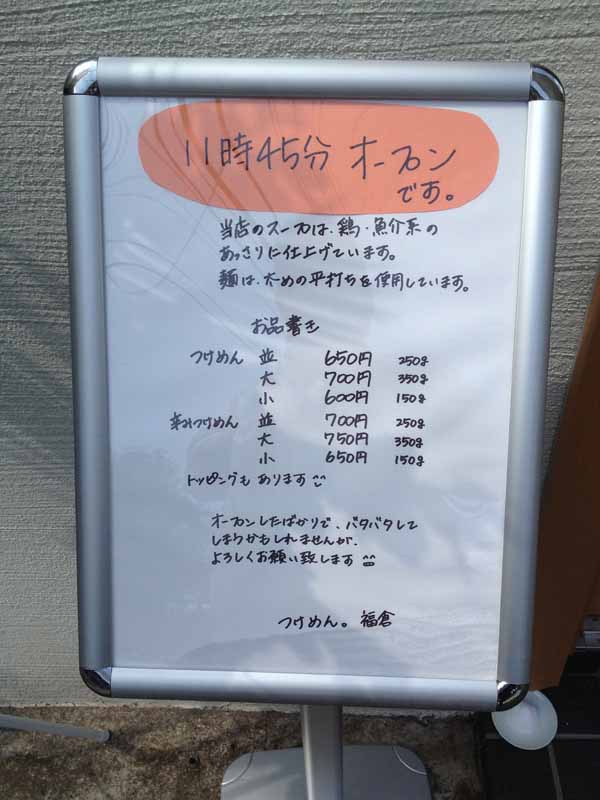 11時45分 オープン
です。
当店のスープは、鶏・魚介系の
あっさりに仕上げています。
麺は、太めの平打ちを使用しています。
お品書き
つけめん 並 650円 250g
大 700円 350g
小 600円 150g
辛みつけめん 並 700円 250g
大 750円 350g
小 650円 150g
トッピングも あります
オープンしたばかりで、バタバタして
しまうかもしれませんが、
よろしくお願い致します ^^
つけめん。福倉